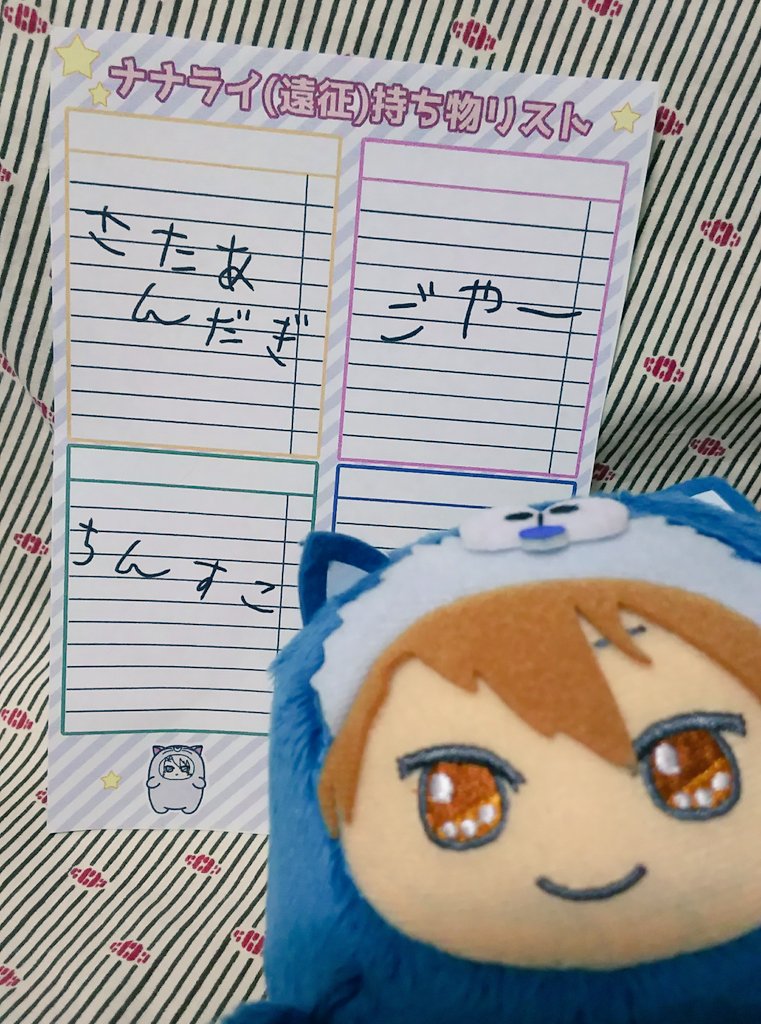 ナナライ(遠征)持ち物リスト
さたあ
んだぎ
ごやー
ちんすこ